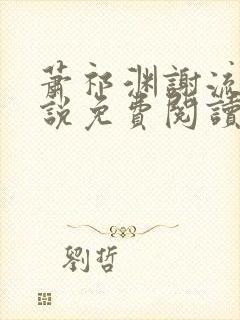 蕭祁淵謝流
說免費閱讀
劉哲